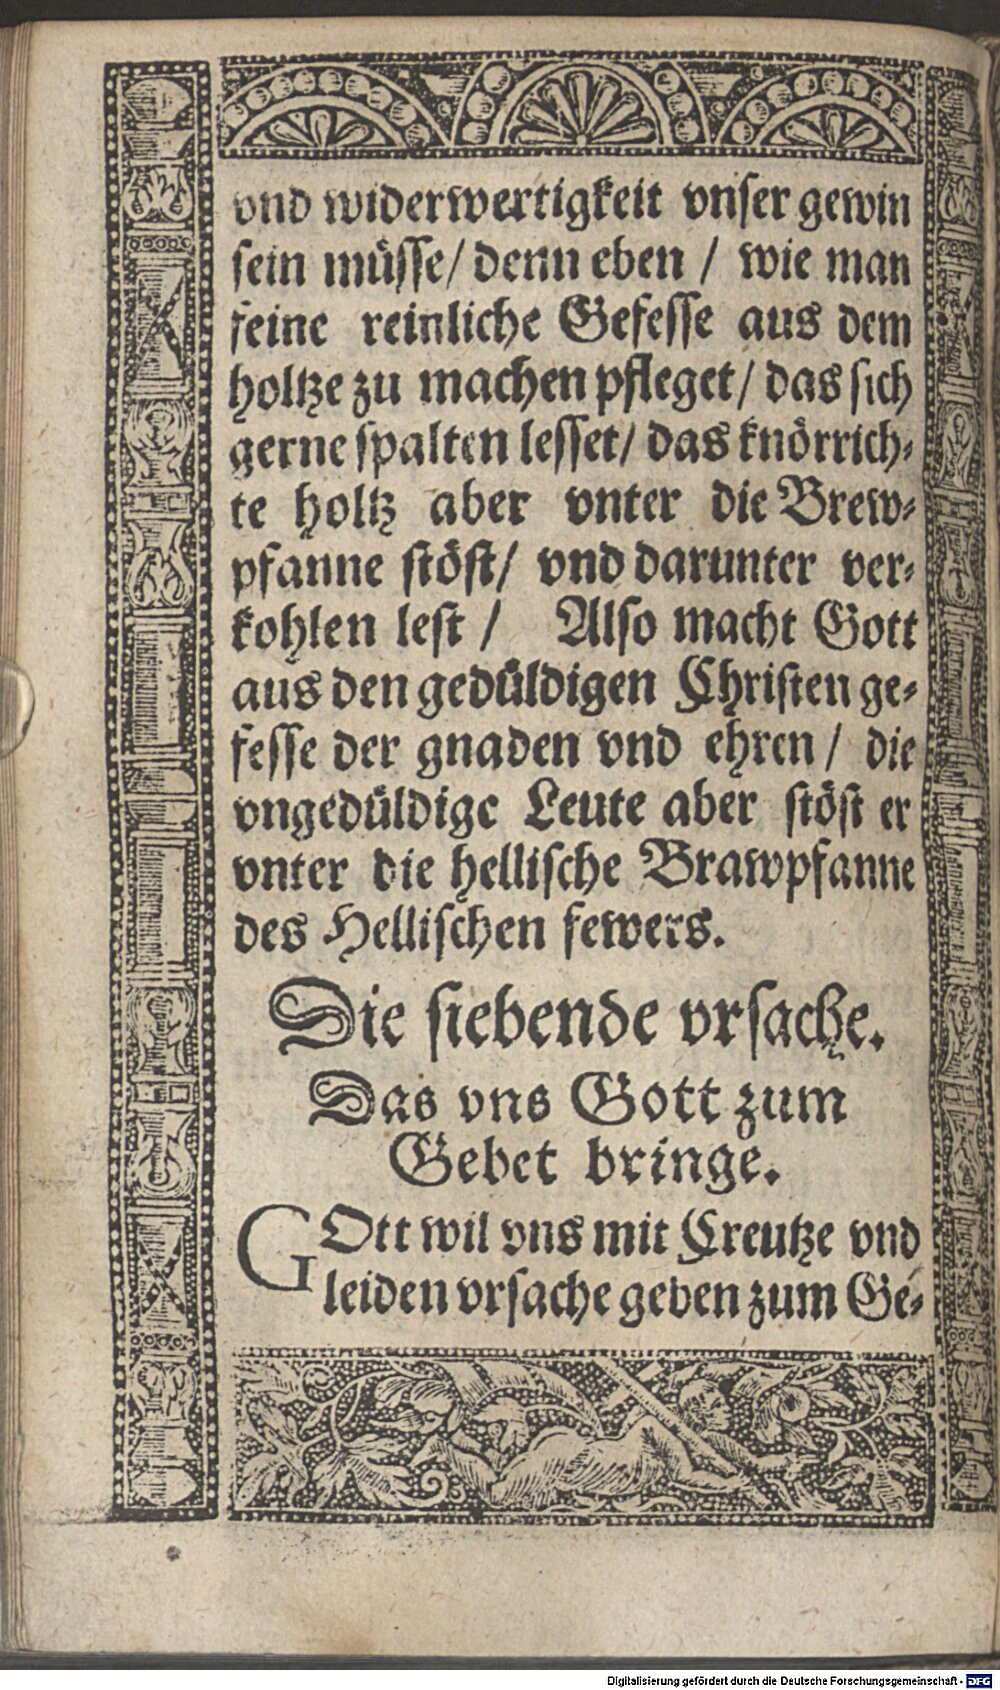 vnd widerwertigkeit vnser gewin
sein müsse/ denn eben / wie man
feine reinliche Gefesse aus dem
holtze zu machen pfleget/ das sich
gerne spalten lesset/ das knörrich-
te holtz aber vnter die Brew-
pfanne stöst/ vnd darunter ver-
kohlen lest / Also macht Gott
aus den gedüldigen Christen ge-
fesse der gnaden vnd ehren / die
vngedüldige Leute aber stöst er
vnter die hellische Brawpfanne
des Hellischen fewers.
Die siebende vrsache.
Das vns Gott zum
Gebet bringe.
GOtt wil vns mit Creutze vnd
leiden vrsache geben zum Ge-
Digitalisierung gefördert durch die Deutsche Forschungsgemeinschaft - DFG